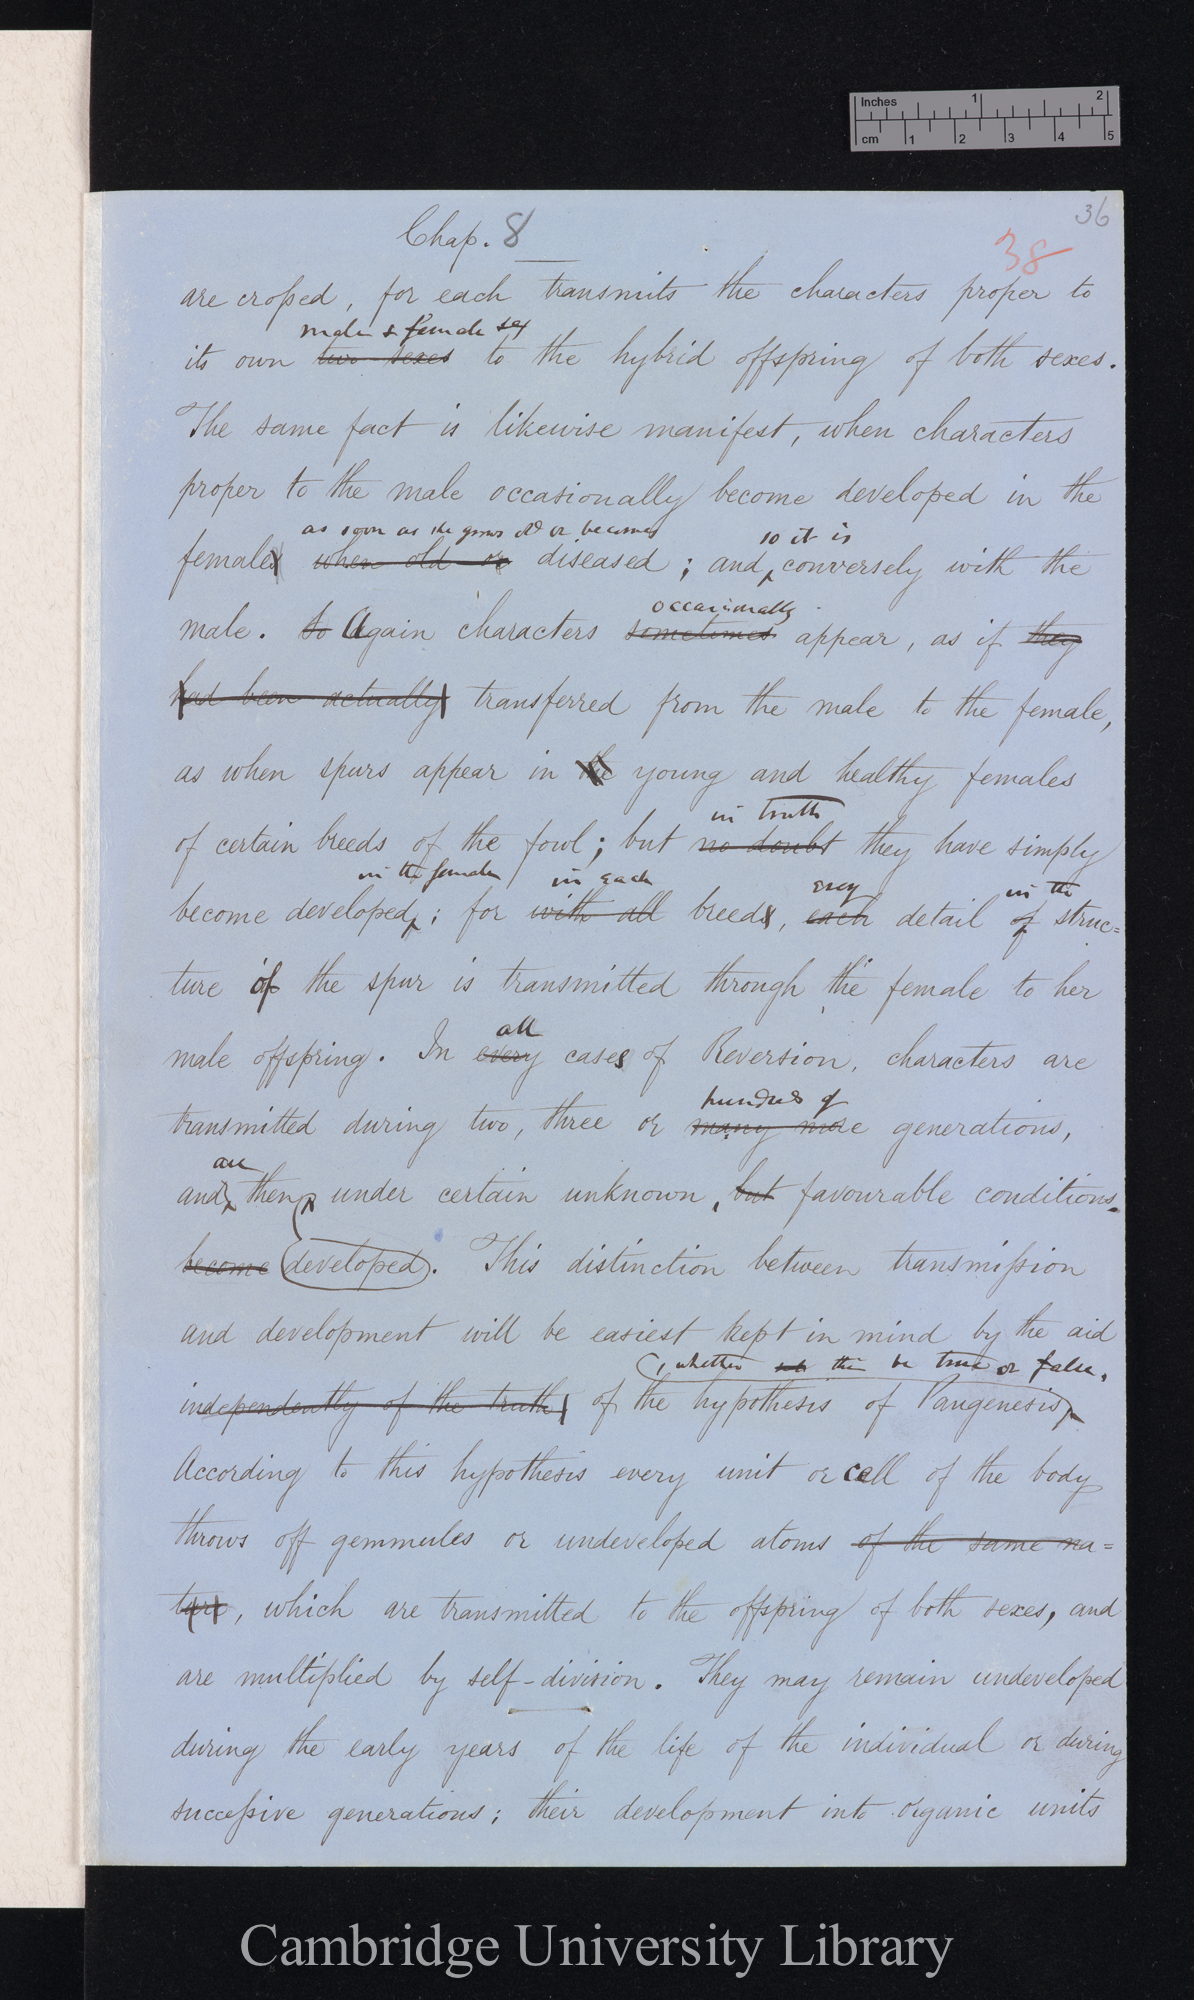 Inches 1 2
cm 1 2 3 4 5
36
Chap. 8
38
are crossed, for each transmits the characters proper to
male & female sex
its own two sexes to the hybrid offspring of both sexes.
The same fact is likewise manifest, when characters
proper to the male occasionally become developed in the
as soon as she grows old or becomes so it is
females when old or diseased; and conversely with the
occasionally
male. So Again characters sometimes appear, as if they
had been actually transferred from the male to the female,
as when spurs appear in the young and healthy females
in truth
of certain breeds of the fowl; but no doubt they have simply
in the female in each every in the
become developed; for with all breeds, each detail of struc=
ture of the spur is transmitted through the female to her
all
male offspring. In every cases of Reversion, characters are
hundreds of
transmitted during two, three or many more generations,
are
and then under certain unknown, but favourable conditions
become developed. This distinction between transmission
and development will be easiest kept in mind by the aid
, whether this be true or false.
independently of the truth of the hypothesis of Pangenesis
According to this hypothesis every unit or cell of the body
throws off gemmules or undeveloped atoms of the same na=
ture, which are transmitted to the offspring of both sexes, and
are multiplied by self-division. They may remain undeveloped
during the early years of the life of the individual or during
successive generations; their development into organic units
Cambridge University Library